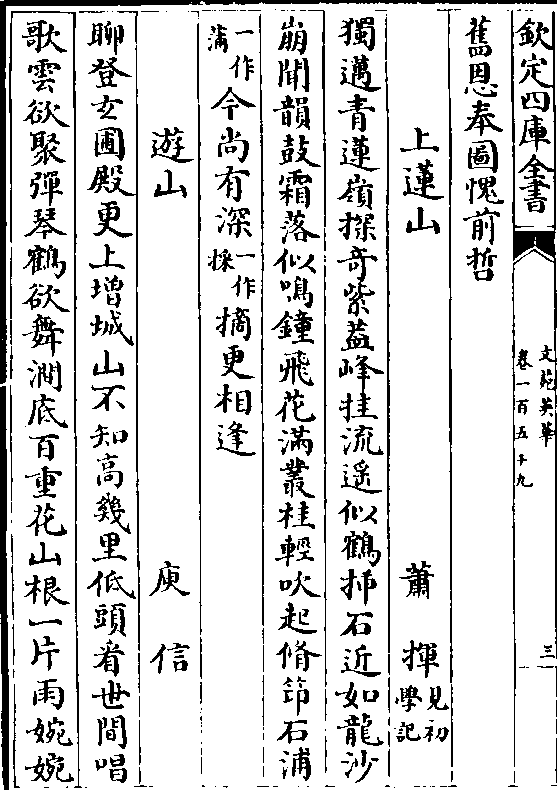 欽定四庫全書
文苑英華
卷一百五十九
三
舊恩奉圖愧前哲
上蓮山 蕭揮見初學記
獨邁青蓮嶺探奇紫葢峰挂流遥似鶴揷石近如龍沙
崩聞韻鼓霜落似鳴鐘飛花滿叢桂輕吹起脩笻石浦
一作蒲今尚有深一作採摘更相逢
遊山 庾信
聊登玄圃殿更上增城山不知高幾里低頭看世間唱
歌雲欲聚彈琴鶴欲舞澗底百重花山根一片雨婉婉